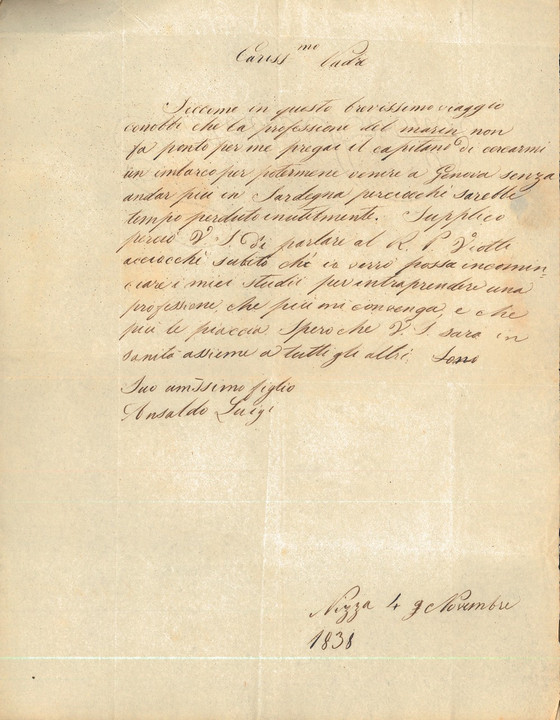 Cariss.mo Padre
Siccome in questo brevissimo viaggio
conobbi che la professione del marin non
fa ponto per me pregai il capitano di cercarmi
un imbarco per potermene venire a Genova senza
andar piu in Sardegna perciocchè sarebbe
tempo perduto inutilmente. Supplico
perciò V. S. di parlare al R. P. Viotti
acciocchè subito ch'io verrò possa incomin
ciare i miei studii per intraprendere una
professione, che più mi convenga, e che
più le piaccia Spero che V. S. sara in
sanità assieme a tutti gli altri. Sono
Suo amissimo figlio
Ansaldo Luigi
Nizza 4 9 Novembre
1838